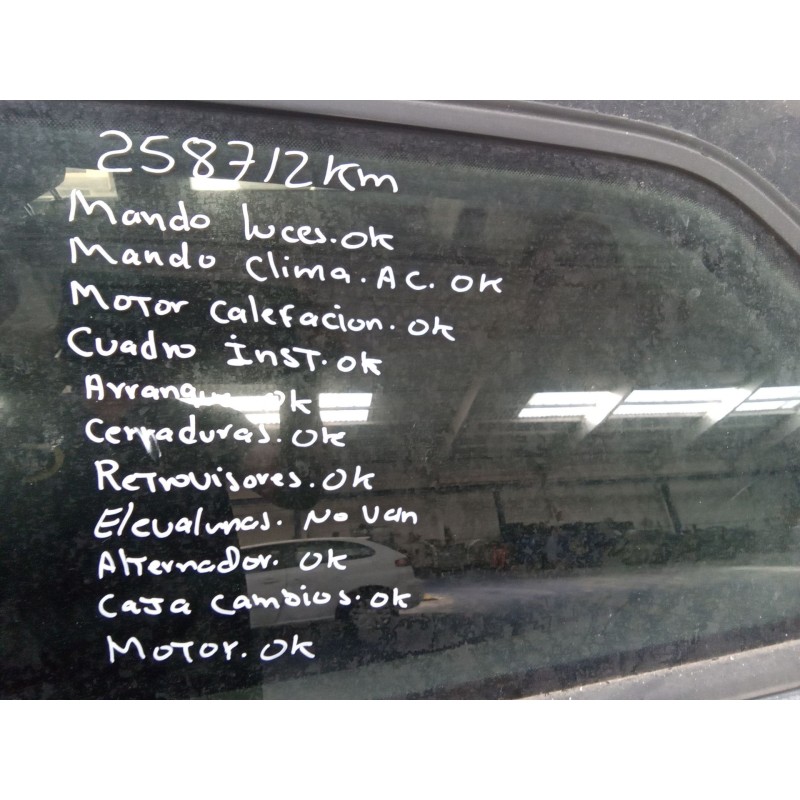 258712Km
Mando luces.OK
Mando Clima.AC.OK
Motor Calefacion.OK
Cuadro INST.OK
Arranque OK
Cerraduras.OK
Retrovisores.OK
Elevalunas. No van
Alternador. OK
Caja Cambios.OK
Motor.OK